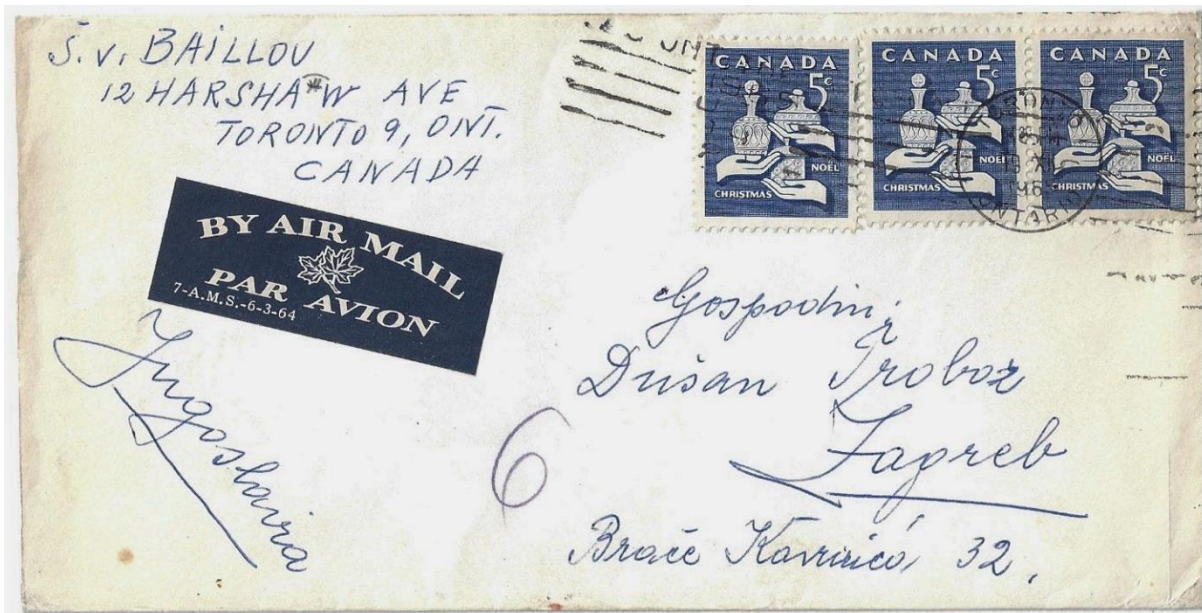 S. v. BAILLOU
12 HARSHAW AVE
TORONTO 9, ONT.
CANADA
BY AIR MAIL
PAR AVION
7-A.M.S.-6-3-64
Jugoslavia
CANADA
5c
NOËL
CHRISTMAS
CANADA
5c
NOËL
CHRISTMAS
CANADA
5c
NOËL
CHRISTMAS
TORONTO
ONTARIO
Gospodin
Dušan
Zagreb
6
Braće Kavurića 32.